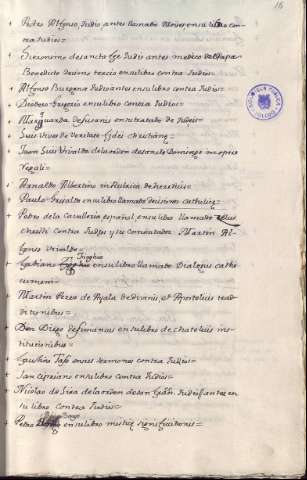 16
Pedro Alfonso, Judio, antes llamado Moises, en su libro con
tra Judios=
+ Geronimo de santa fee Judio antes medico del Papa
Benedicto decimo tercio en su libro contra Judios=
+ Alfonso Burgense Judio antes en su libro contra Judios=
en su libro contra Judios=
+ en su tratado de Judeis=
+ Luis Vives de veritate fidei christianę
+ Juan Luis Vivaldo de la orden de santo Domingo en opere
Regali=
+ Arnaldo Albertino en Rubrica de hereticis=
+ Paulo en su libro llamado
+ Pedro de la Cavalleria español, en su libro llamado Zelus
christi contra Judios y su comentador Martin Al
fonso Vivaldo=
+ en su libro llamado Dialogus catho
+ Martin Perez de Ayala de divinis et Apostolicis trad
ditionibus=
+ Don Diego de Simancas en su libro de chatolicis ins
titutionibus=
+ Faustino Taso en sus sermones contra Judios=
+ San Cipriano en su libro contra Judios=
+ Nicolao de Lira de la orden de san Judio antes en
su libro contra Judios=
+ Pedro en su libro